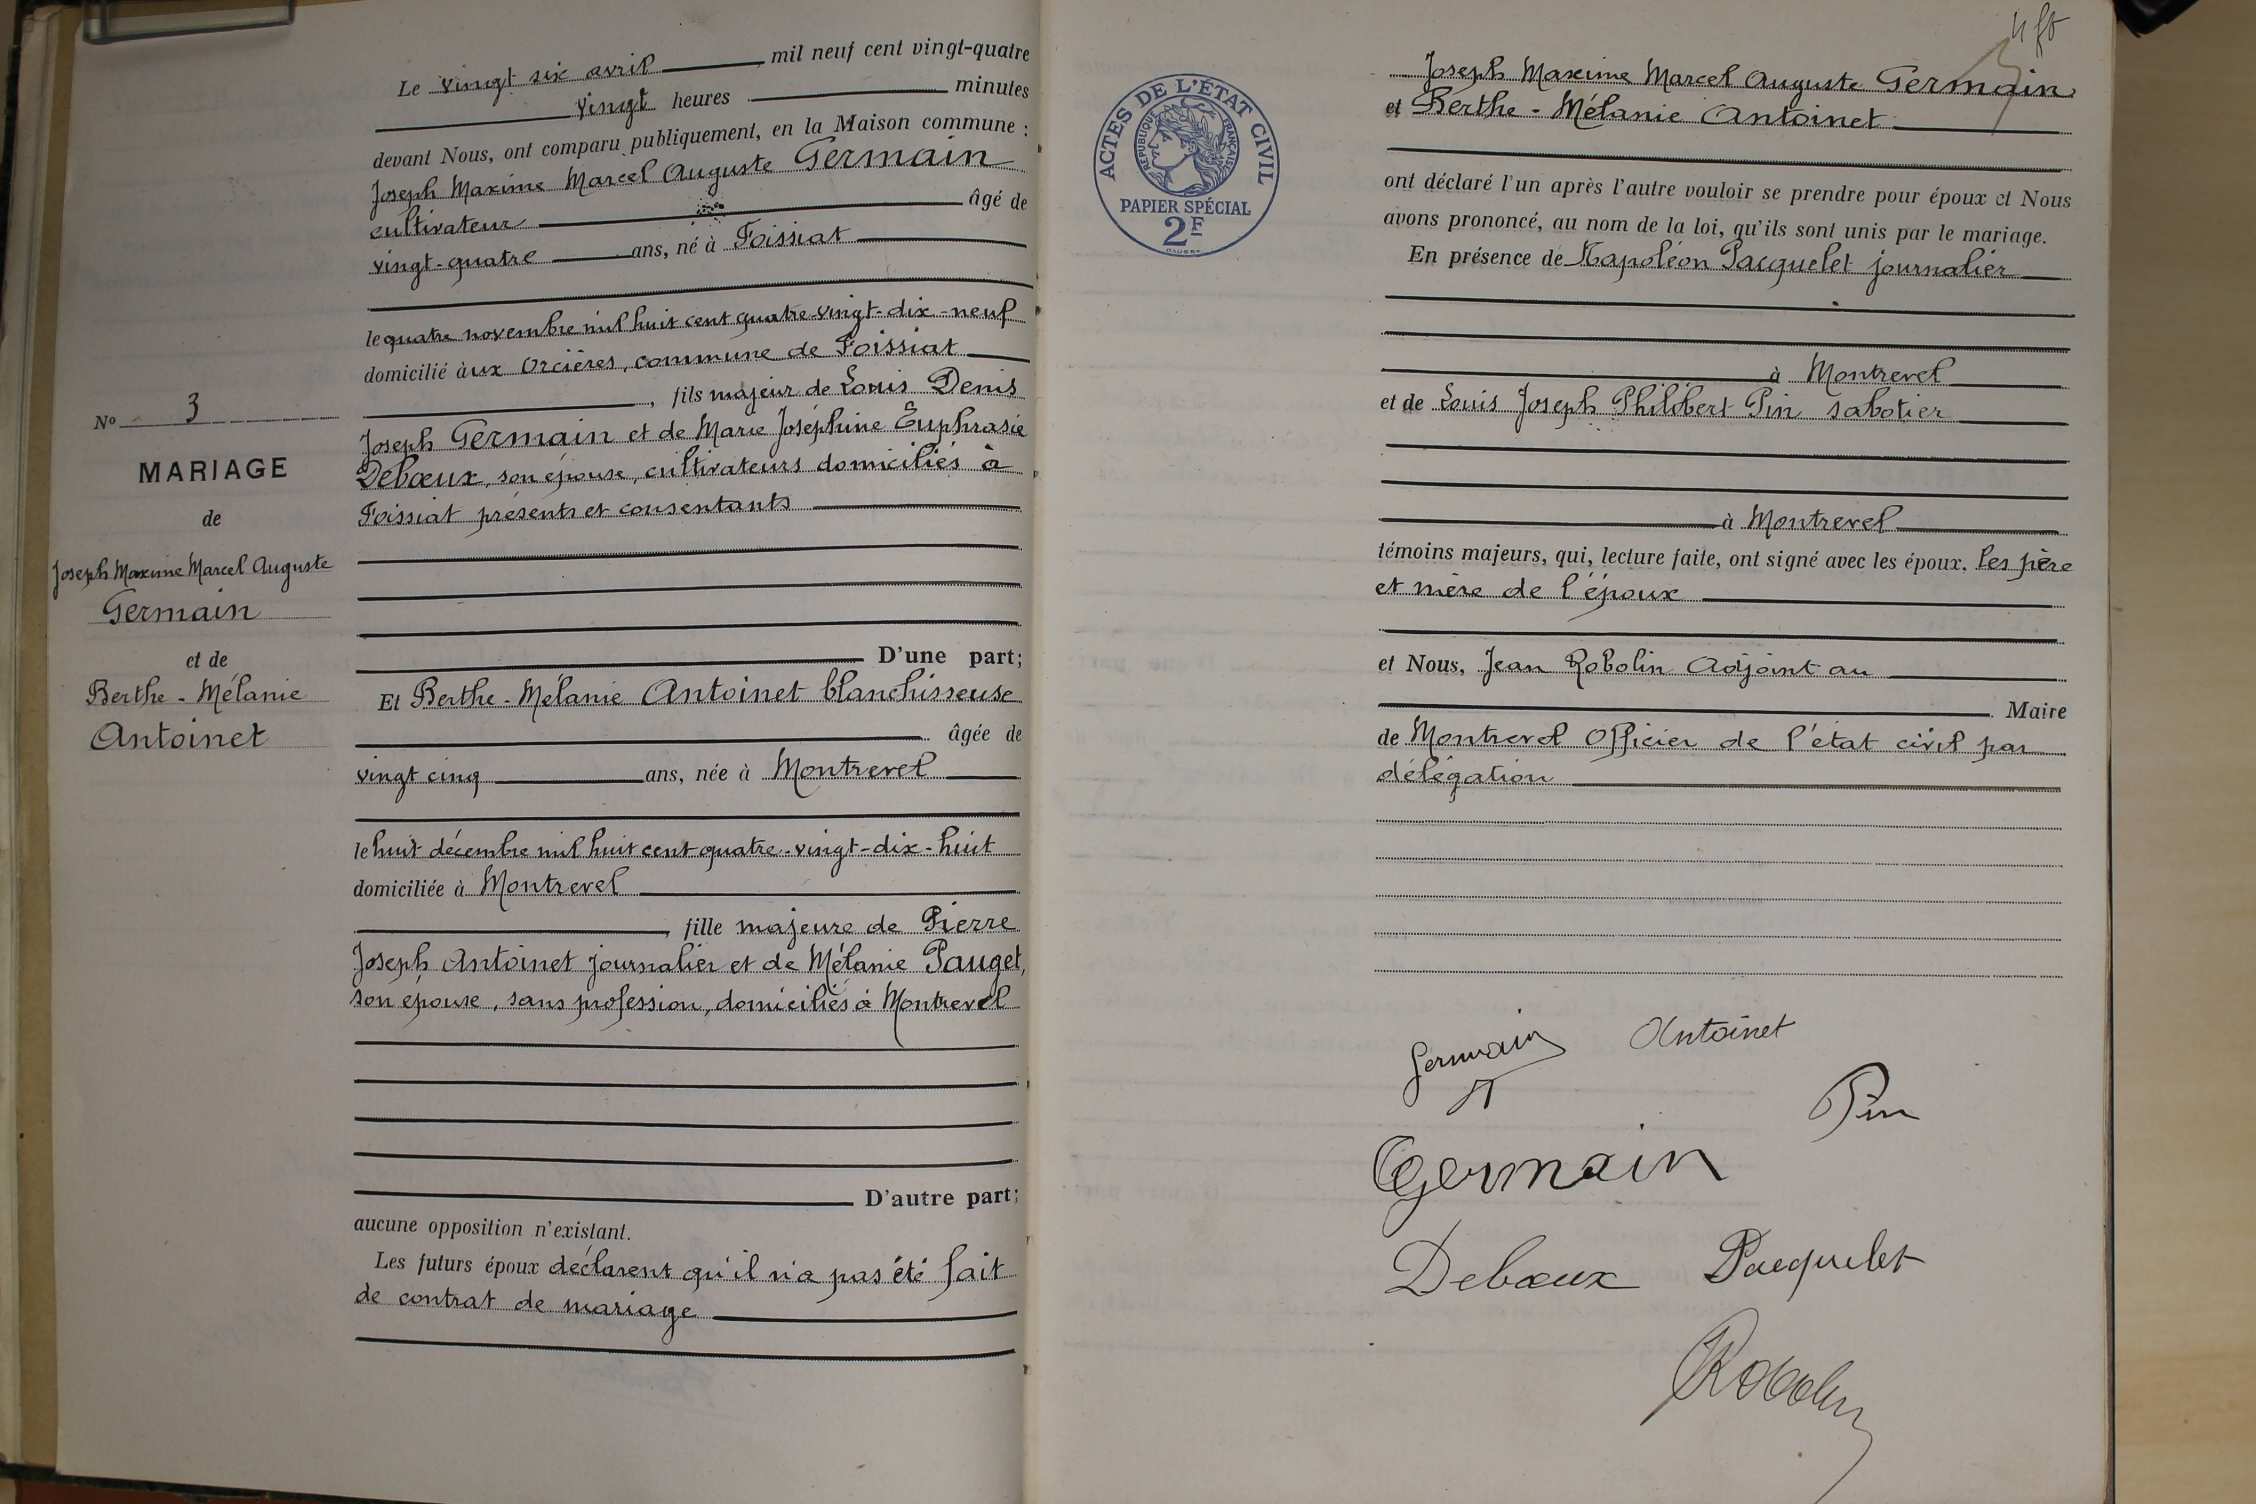 Le vingt six avril mil neuf cent vingt-quatre
vingt heures minutes
devant Nous, ont comparu publiquement, en la Maison commune :
Joseph Maxime Marcel Auguste Germain
cultivateur âgé de
vingt-quatre ans, né à Foissiat
le quatre novembre mil huit cent quatre-vingt-dix-neuf
domicilié aux Orcières, commune de Foissiat
, fils majeur de Louis Denis
Joseph Germain et de Marie Joséphine Euphrasie
Debœux, son épouse, cultivateurs domiciliés à
Foissiat présents et consentants
D'une part;
Et Berthe-Mélanie Antoinet blanchisseuse
âgée de
vingt cinq ans, née à Montrevel
le huit décembre mil huit cent quatre-vingt-dix-huit
domiciliée à Montrevel
, fille majeure de Pierre
Joseph Antoinet journalier et de Mélanie Pauget,
son épouse, sans profession, domiciliés à Montrevel
D'autre part;
aucune opposition n'existant.
Les futurs époux déclarent qu'il n'a pas été fait
de contrat de mariage
No 3
MARIAGE
de
Joseph Maxime Marcel Auguste
Germain
et de
Berthe-Mélanie
Antoinet
ACTES DE L'ÉTAT CIVIL
RÉPUBLIQUE FRANÇAISE
PAPIER SPÉCIAL
2F
Joseph Maxime Marcel Auguste Germain
et Berthe-Mélanie Antoinet
ont déclaré l'un après l'autre vouloir se prendre pour époux et Nous
avons prononcé, au nom de la loi, qu'ils sont unis par le mariage.
En présence de Napoléon Pacquelet journalier
à Montrevel
et de Louis Joseph Philibert Pin sabotier
à Montrevel
témoins majeurs, qui, lecture faite, ont signé avec les époux, les père
et mère de l'époux
et Nous, Jean Robolin Adjoint au
Maire
de Montrevel Officier de l'état civil par
délégation
Germain Antoinet
Pin
Germain
Debœux Pacquelet
Robolin